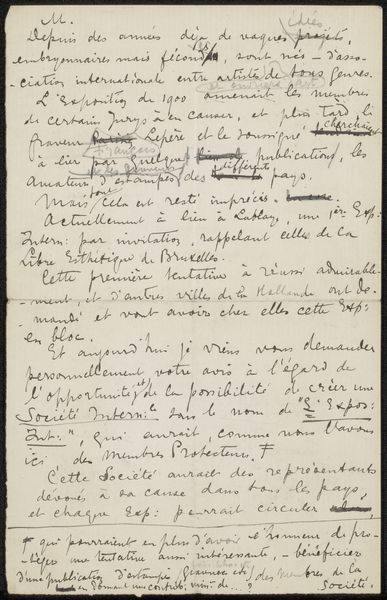 M.
idées
Depuis des années déjà de vagues projets,
embryonnaires mais féconds, sont nés – d'asso-
ciation internationale entre artistes de tous genres.
L'Exposition de 1900 amenait les membres
de certains Jurys à en causer, et plus tard le
graveur Lepère et le soussigné cherchaient
français
à lier par quelques publications, les
différents
Amateurs d'estampes des pays.
tout
Mais cela est resté imprécis.
Actuellement a lieu à Lahaye, une 1ère Exp:
Intern: par invitation, rappelant celles de la
Libre Esthétique de Bruxelles.
Cette première tentative a réussi admirable-
ment, et d'autres villes de la Hollande ont de-
mandé et vont avoir chez elles cette Exp:
en bloc.
Et aujourd'hui je viens vous demander
personnellement votre avis à l'égard de
l'opportunité et de la possibilité de créer une
Société Intern:le dans le nom de "L'Expos:
Int:", qui aurait, comme nous l'avons
ici, des Membres Protecteurs. F
Cette Société aurait des représentants
dévoués à sa cause dans tous les pays,
et chaque Exp: pourrait circuler
F qui pourraient en plus d'avoir l'honneur de pro-
téger une tentative aussi intéressante, – bénéficier
d'une publication d'estampes (gravures etc) des membres de la
en donnant une contrib. min: de ..? Société.